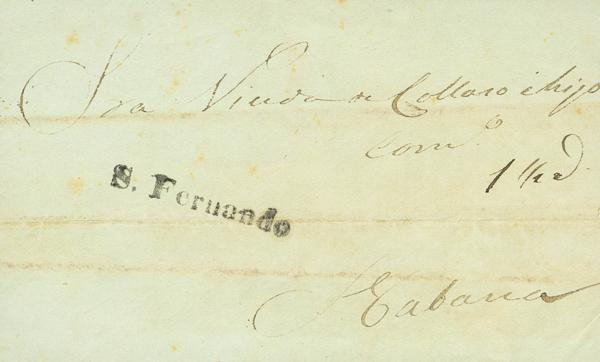 Sra Viuda de Collaso é hijo
Com.º
1 1/2 d
S. Fernando
Habana